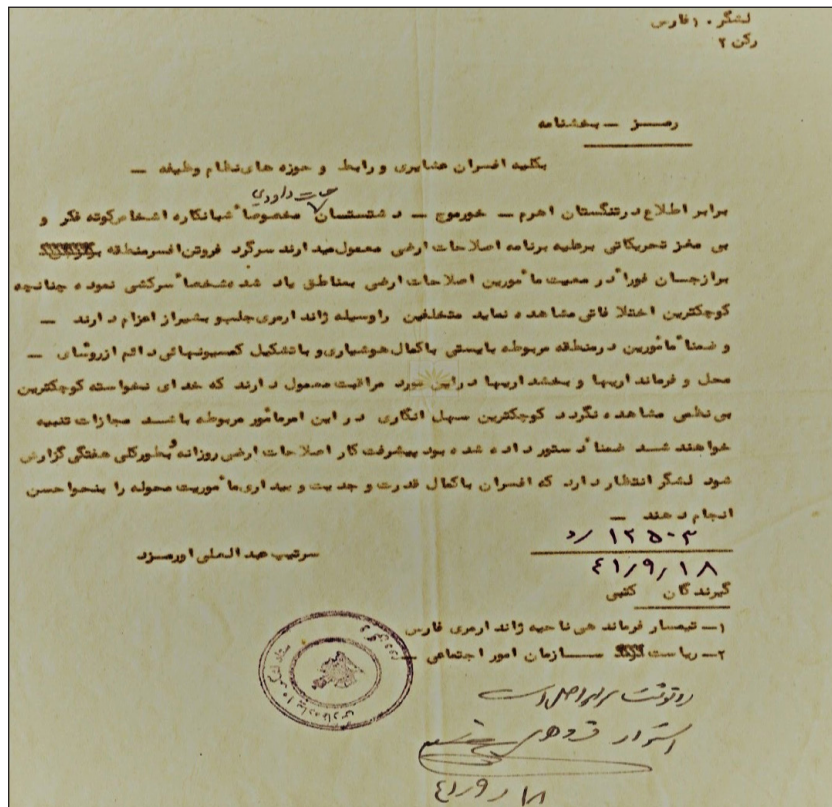 لشگر ۱۰ فارس
رکن ۲
رمــز – بخشنامه
بکلیه افسران عشایری و رابط و حوزه های نظام وظیفه –
حیات داودی
برابر اطلاع در تنگستان اهرم – خورموج – دشتستان مخصوصاً شبانکاره اشخاص کوته فکر و
بی مغز تحریکاتی برعلیه برنامه اصلاحات ارضی معمول میدارند سرگرد فروتن افسر منطقه
برازجان فوراً در معیت مأمورین اصلاحات ارضی بمناطق یاد شده شخصاً سرکشی نموده چنانچه
کوچکترین اختلافاتی مشاهده نماید متخلفین را وسیله ژاندارمری جلب و بشیراز اعزام دارند –
و ضمناً مأمورین در منطقه مربوطه بایستی باکمال هوشیاری و با تشکیل کمسیونهائی دائم از روسای –
محل و فرمانداریها و بخشداریها در این مورد مراقبت معمول دارند که خدای نخواسته کوچکترین
بی نظمی مشاهده نگردد کوچکترین سهل انگاری در این امر مأمور مربوطه باشد مجازات تنبیه
خواهند شد ضمناً دستور داده شده بود پیشرفت کار اصلاحات ارضی روزانه و بطورکلی هفتگی گزارش
شود لشگر انتظار دارد که افسران باکمال قدرت و جدیت و بیداری مأموریت محوله را بنحو احسن
انجام دهند –
۱۲۵۰۳ / ر۲
سرتیپ عبدالعلی اورمزد
۴۱/۹/۱۸
گیرندگان کتبی
۱– تیمسار فرماندهی ناحیه ژاندارمری فارس
۲– ریاست سازمان امور اجتماعی –
رونوشت برابر اصل است
استوار
۴۱/۹/۱۸